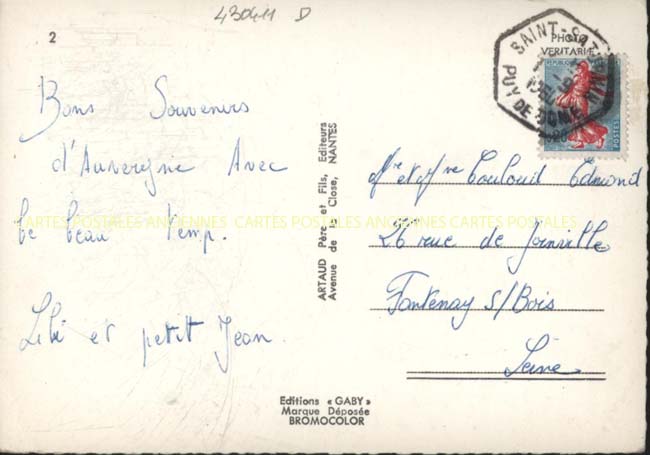 430411 D
2
PHOTO
VERITABLE
SAINT-SATURNIN
PUY DE DOME
POSTES
Bons Souvenirs
d'Auvergne Avec
le beau temp.
Lili et petit Jean.
CARTES POSTALES ANCIENNES CARTES POSTALES ANCIENNES CARTES POSTALES
ARTAUD Père et Fils, Editeurs
Avenue de la Close, NANTES
Mr et Mme Toulouil Edmond
26 rue de Joinville
Fontenay s/Bois
Seine
Editions « GABY »
Marque Déposée
BROMOCOLOR